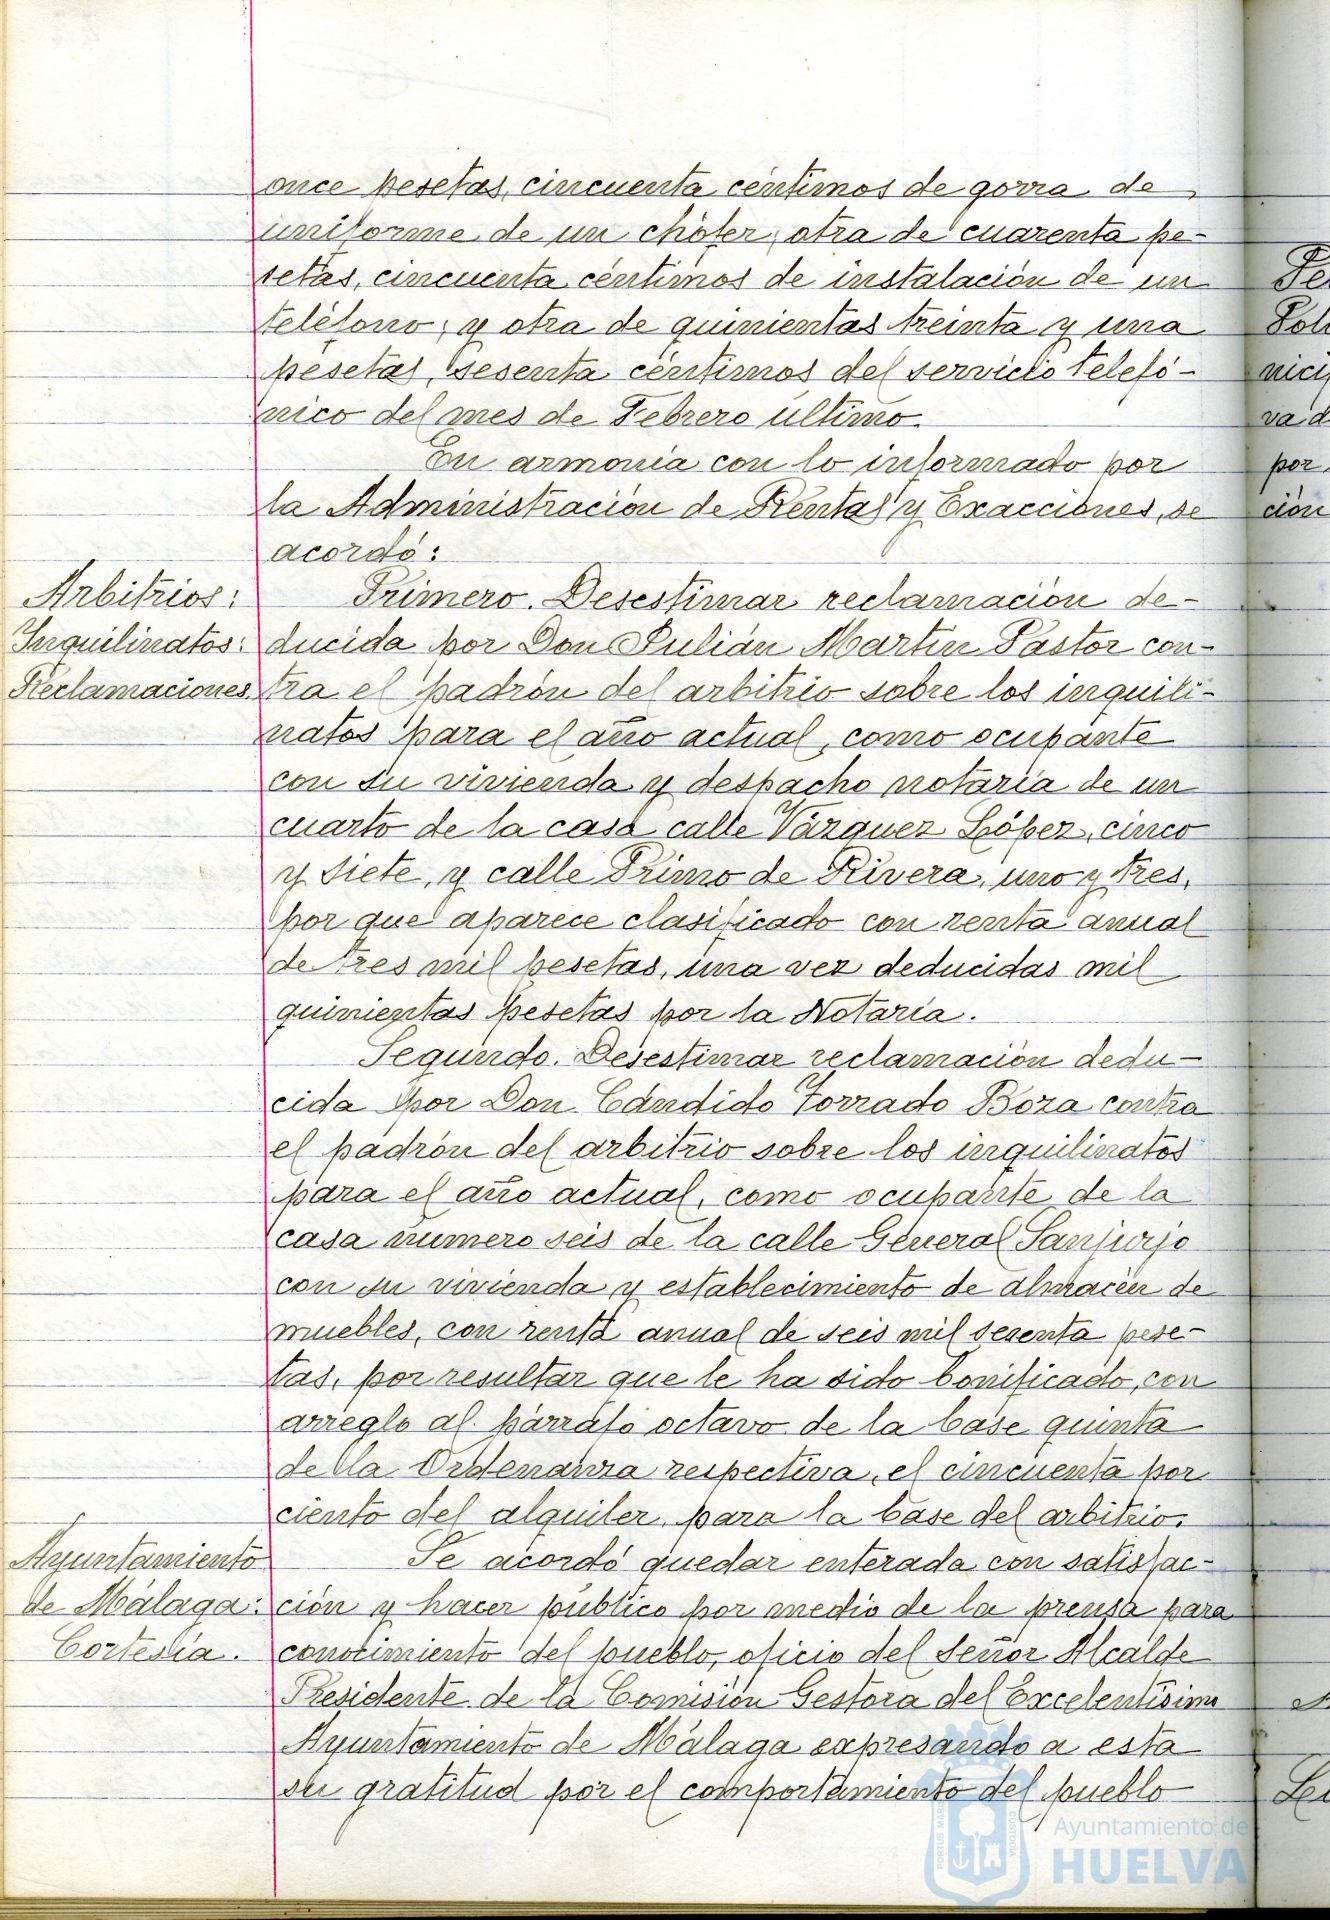 once pesetas, cincuenta céntimos de gorra de
uniforme de un chófer; otra de cuarenta pe-
setas, cincuenta céntimos de instalación de un
teléfono; y otra de quinientas treinta y una
pesetas, sesenta céntimos del servicio telefó-
nico del mes de Febrero último.
En armonía con lo informado por
la Administración de Rentas y Exacciones, se
acordó:
Arbitrios:
Inquilinatos:
Reclamaciones.
Primero. Desestimar reclamación de-
ducida por Don Julián Martín Pastor con-
tra el padrón del arbitrio sobre los inquili-
natos para el año actual, como ocupante
con su vivienda y despacho notaría de un
cuarto de la casa calle Vázquez López, cinco
y siete, y calle Primo de Rivera, uno y tres,
por que aparece clasificado con renta anual
de tres mil pesetas, una vez deducidas mil
quinientas pesetas por la Notaría.
Segundo. Desestimar reclamación dedu-
cida por Don Cándido Forrado Boza contra
el padrón del arbitrio sobre los inquilinatos
para el año actual, como ocupante de la
casa número seis de la calle General Sanjurjo
con su vivienda y establecimiento de almacén de
muebles, con renta anual de seis mil pese-
tas, por resultar que le ha sido bonificado, con
arreglo al párrafo octavo de la base quinta
de la Ordenanza respectiva, el cincuenta por
ciento del alquiler para la base del arbitrio.
Ayuntamiento
de Málaga:
Cortesía.
Se acordó quedar enterada con satisfac-
ción y hacer público por medio de la prensa para
conocimiento del pueblo, oficio del Señor Alcalde
Presidente de la Comisión Gestora del Excelentísimo
Ayuntamiento de Málaga expresando a esta
su gratitud por el comportamiento del pueblo
PORTUS MARIS
CUSTODIA
Ayuntamiento de
HUELVA
Pol
nici
va d
por
ción